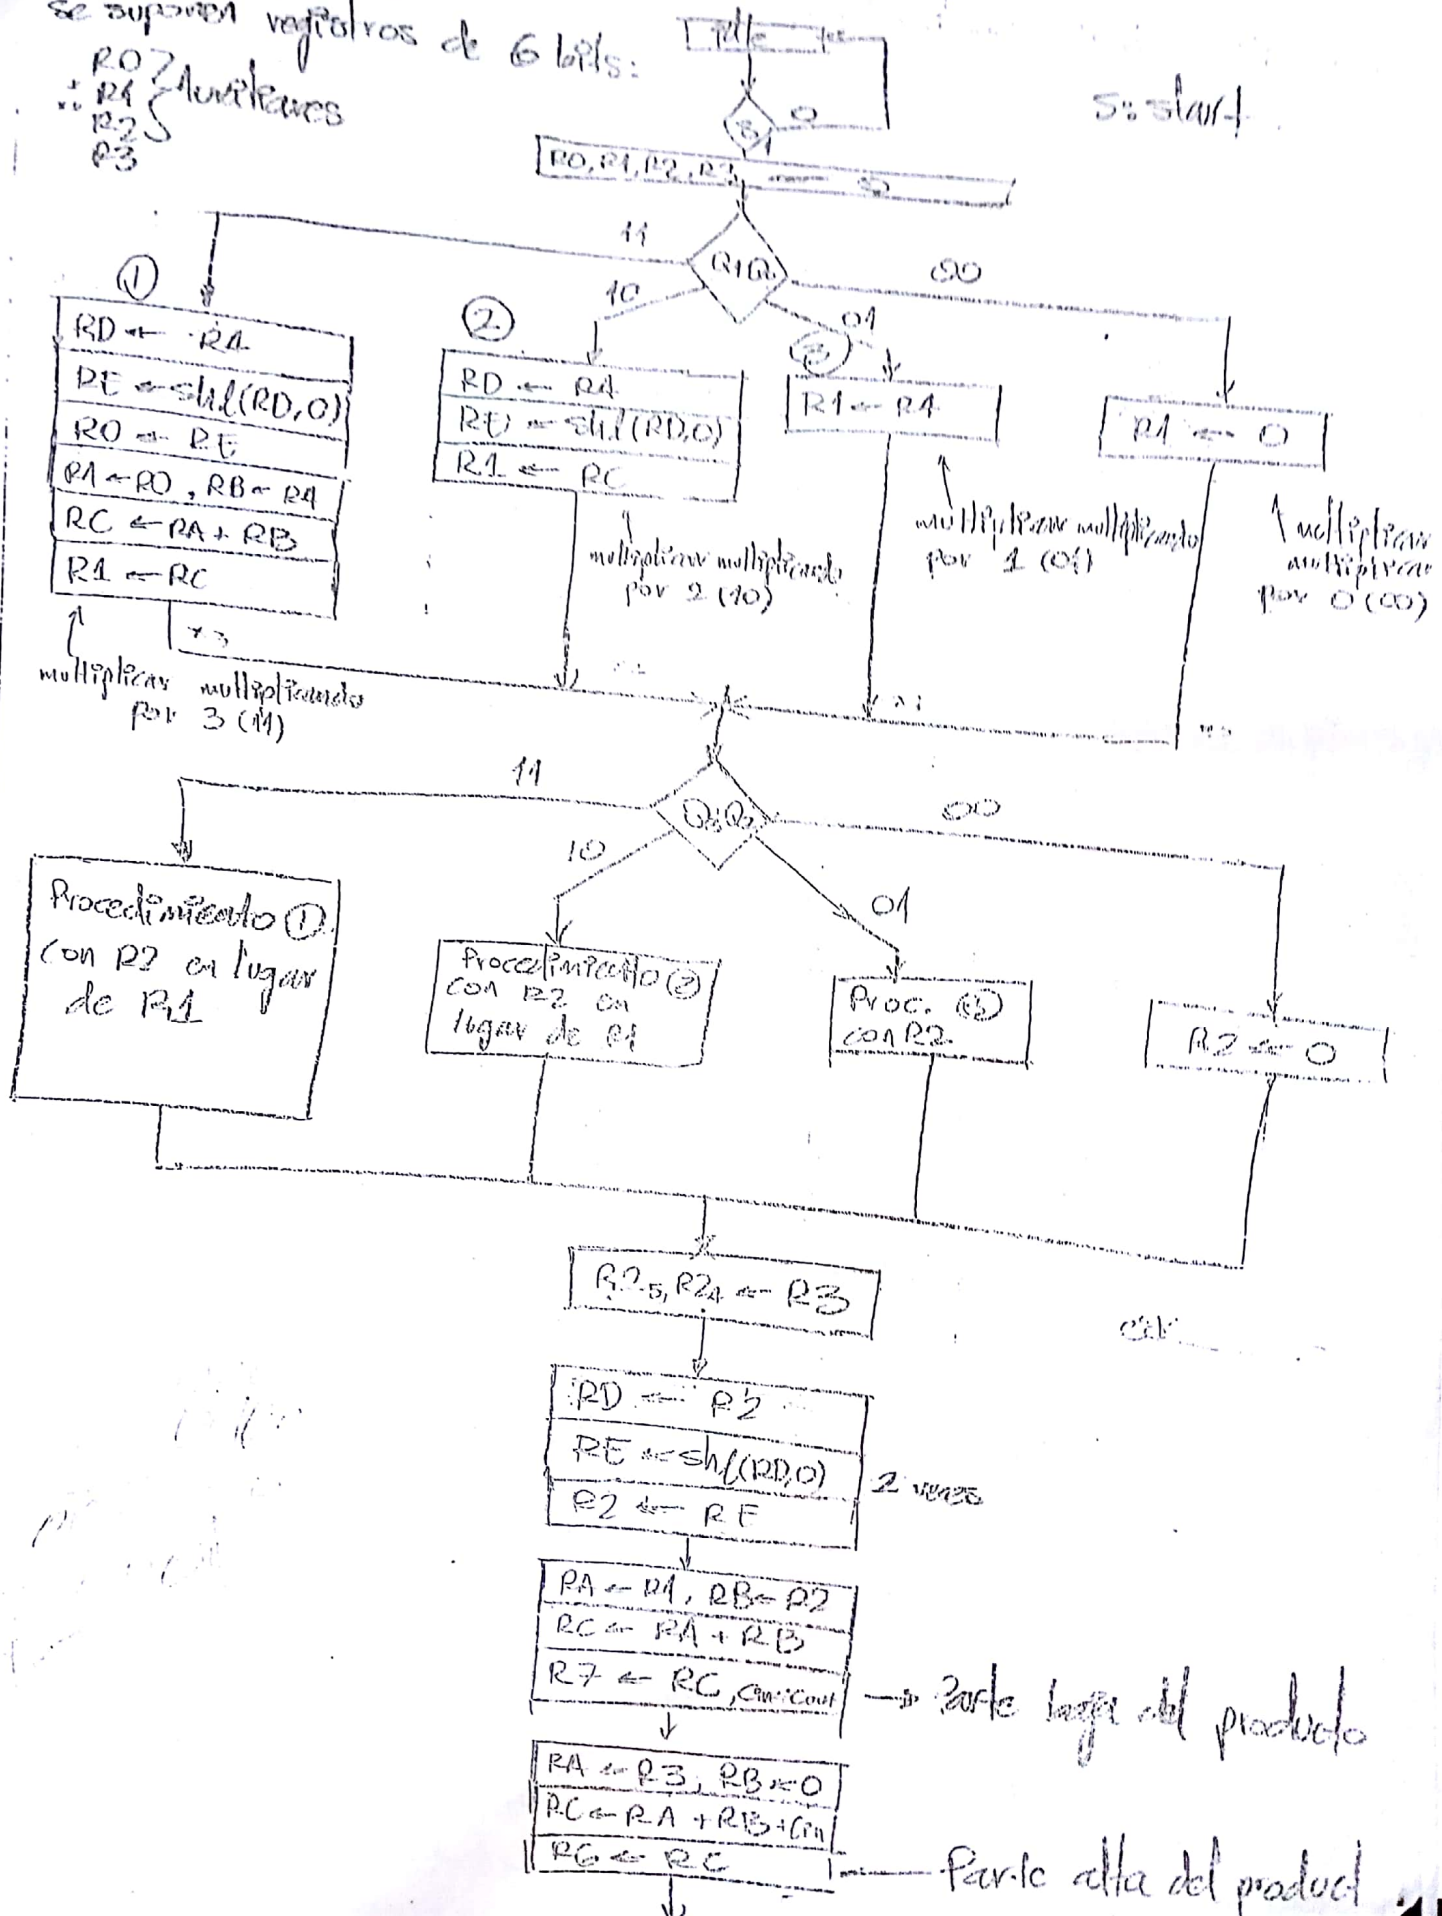 se suponen registros de 6 bits:
R0
R1
R2
Auxiliares
R3
idle
S: start
S
0
1
R0, R1, R2, R3
11
00
10
01
1
2
3
RD ← R4
RE ← shl(RD,0)
R0 ← RE
RA ← R0, RB ← R4
RC ← RA + RB
R1 ← RC
RD ← R4
RE ← shl(RD,0)
R1 ← RC
R1 ← R4
R1 ← 0
multiplicar multiplicando
por 3 (11)
x3
multiplicar multiplicando
por 2 (10)
multiplicar multiplicando
por 1 (01)
multiplicar
por 0 (00)
11
Q3Q2
00
10
01
Procedimiento 1
con R2 en lugar
de R1
Procedimiento 2
con R2 en
lugar de R1
Proc. 3
con R2
R2 ← 0
R25, R24 ← R3
RD ← R2
RE ← shl(RD,0)
R2 ← RE
2 veces
RA ← R1, RB ← R2
RC ← RA + RB
R7 ← RC, Cin=Cout
→ Parte baja del producto
RA ← R3, RB ← 0
RC ← RA + RB + Cin
R6 ← RC
Parte alta del product